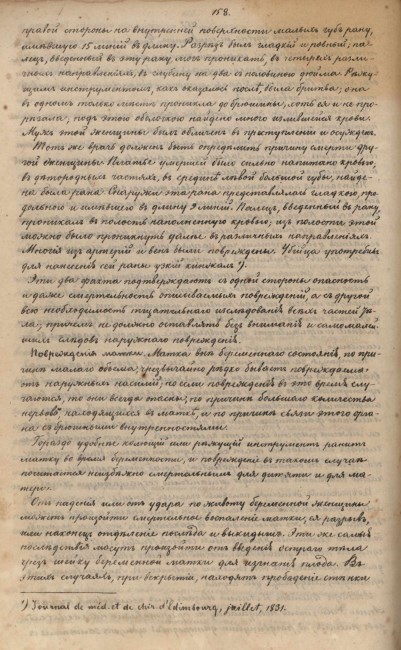 158.
правой стороны на внутренней поверхности малыхъ губъ рану,
имѣвшую 15 линій въ длину. Разрѣзъ былъ гладкій и ровной; па-
лецъ, введенный въ эту рану, могъ проникать, въ четырехъ разли-
чныхъ направленіяхъ, въ глубину на два съ половиною дюйма. Режу-
щимъ инструментомъ, какъ оказалось послѣ, была бритва; она
въ одномъ только мѣстѣ проникла до брюшины, хоть ея и не про-
рѣзала, подъ этою оболочкою найдено много излившейся крови.
Мужъ этой женщины былъ обличенъ въ преступленіи и осужденъ.
Тотъ же врачъ долженъ былъ опредѣлить причину смерти дру-
гой женщины. Платье умершей было сильно напитано кровью,
въ дѣтородныхъ частяхъ, въ срединѣ лѣвой большой губы, найде-
на была рана. Снаружи эта рана представлялась гладкою, про-
дольною и имѣвшею въ длину линій. Палецъ, введенный въ рану,
проникалъ въ полость наполненную кровью; изъ полости этой
можно было проникнуть далѣе въ различныхъ направленіяхъ.
Многія изъ артерій и венъ были повреждены. Убійца употребилъ
для нанесенія сей раны узкій кинжалъ *).
Эти два факта подтверждаютъ съ одной стороны опасность
и даже смертельность описываемыхъ поврежденій, а съ другой
всю необходимость тщательнаго изслѣдованія всѣхъ частей тѣ-
ла; причемъ не должно оставлять безъ вниманія и самомалѣй-
шихъ слѣдовъ наружнаго поврежденія.
Поврежденія матки. Матка внѣ беременнаго состоянія, по при-
чинѣ малаго объема, чрезвычайно рѣдко бываетъ повреждаема
отъ наружныхъ насилій; но если поврежденія въ это время слу-
чаются, то они всегда опасны; по причинѣ большаго количества
нервовъ находящихся въ маткѣ, и по причинѣ связи этого орга-
на съ брюшными внутренностями.
Гораздо удобнѣе колющій или рѣжущій инструментъ ранитъ
матку во время беременности, и поврежденія въ такомъ случаѣ
почитаются неизбѣжно смертельными для дитяти и для ма-
тери.
Отъ паденія или отъ удара по животу беременной женщины
можетъ произойти смертельное воспаленіе матки, ея разрывъ,
или наконецъ отдѣленіе послѣда и выкидышъ. Эти же самыя
послѣдствія могутъ произойти отъ введенія остраго тѣла
чрезъ шейку беременной матки для изгнанія плода. Въ
этихъ случаяхъ, при вскрытіи, находятъ прободеніе стѣнки
*) Journal de méd. et de chir. d'Edimbourg, juillet, 1831.